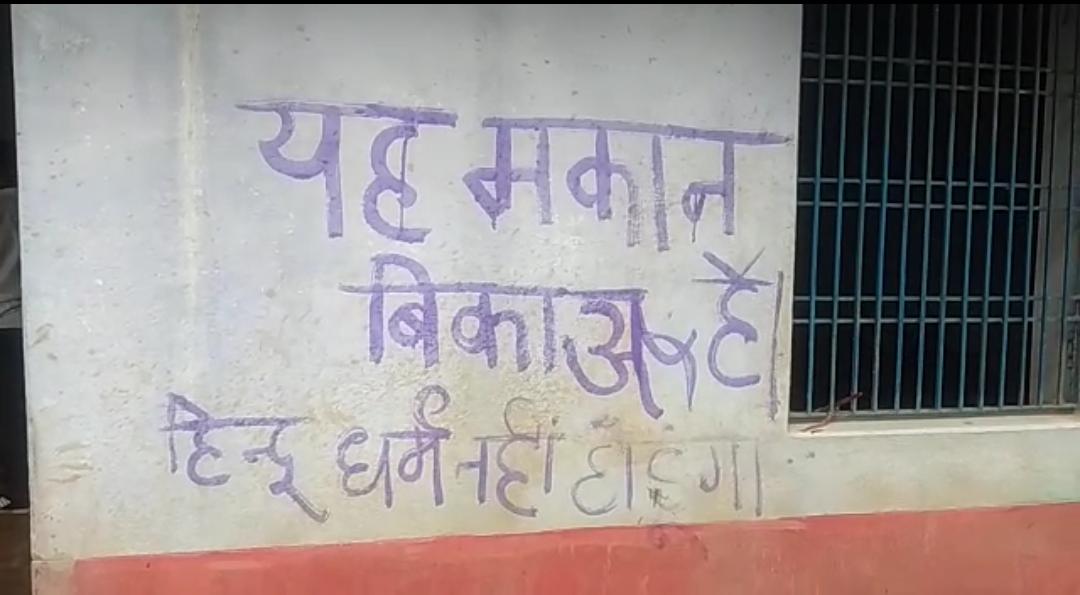 यह मकान
बिकाऊ है।
हिन्दू धर्म नहीं